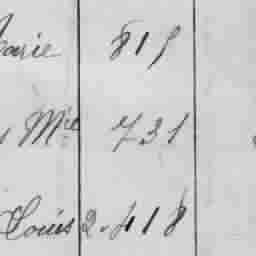 Marie 815
Mie 731
Louis 2.418